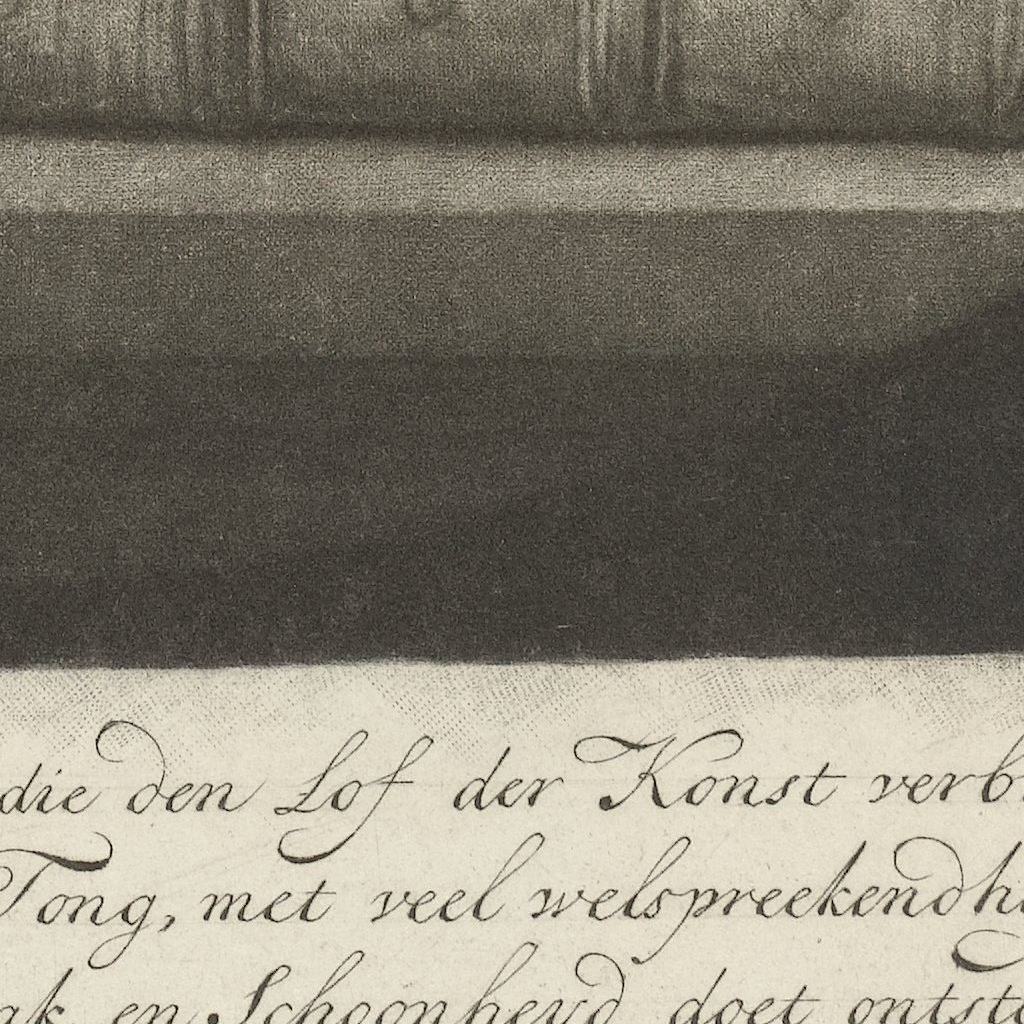 die den Lof der Konst verb
Tong, met veel welspreekendh
ak en Schoonheyd doet ontst